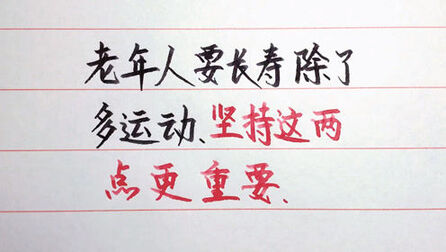 老年人要长寿除了
多运动、坚持这两
点更重要、